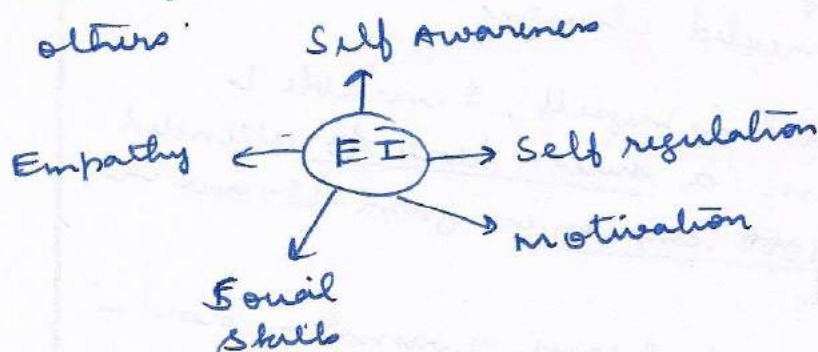 others.
Self Awareness
Empathy
EI
Self regulation
motivation
Social
Skills